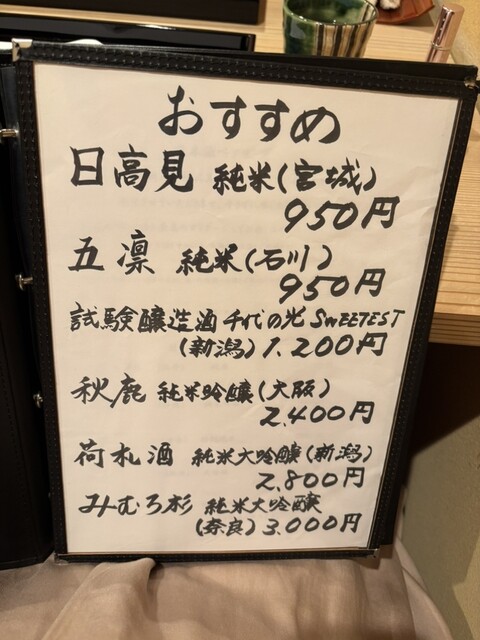 おすすめ
日高見 純米(宮城)
950円
五凛 純米(石川)
950円
試験醸造酒 千代の光 SWEETEST
(新潟) 1.200円
秋鹿 純米吟醸(大阪)
2.400円
荷札酒 純米大吟醸(新潟)
2.800円
みむろ杉 純米大吟醸
(奈良) 3.000円